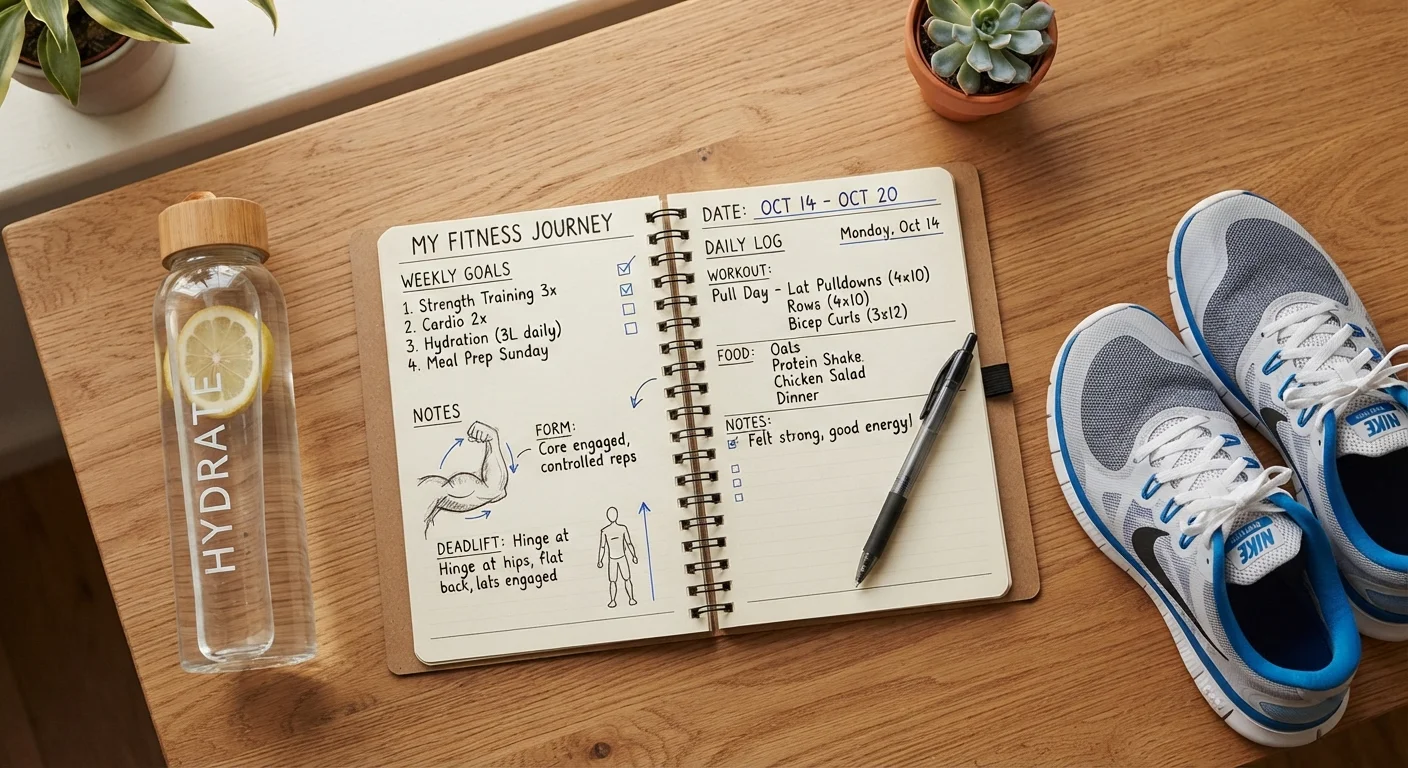 HYDRATE
MY FITNESS JOURNEY
WEEKLY GOALS
1. Strength Training 3x
2. Cardio 2x
3. Hydration (3L daily)
4. Meal Prep Sunday
NOTES
FORM:
Core engaged,
controlled reps
DEADLIFT: Hinge at
Hinge at hips, flat
back, lats engaged
DATE: OCT 14 - OCT 20
DAILY LOG
Monday, Oct 14
WORKOUT:
Pull Day - Lat Pulldowns (4x10)
Rows (4x10)
Bicep Curls (3x12)
FOOD: Oats
Protein Shake.
Chicken Salad
Dinner
NOTES:
Felt strong, good energy!
NIKE
NIKE